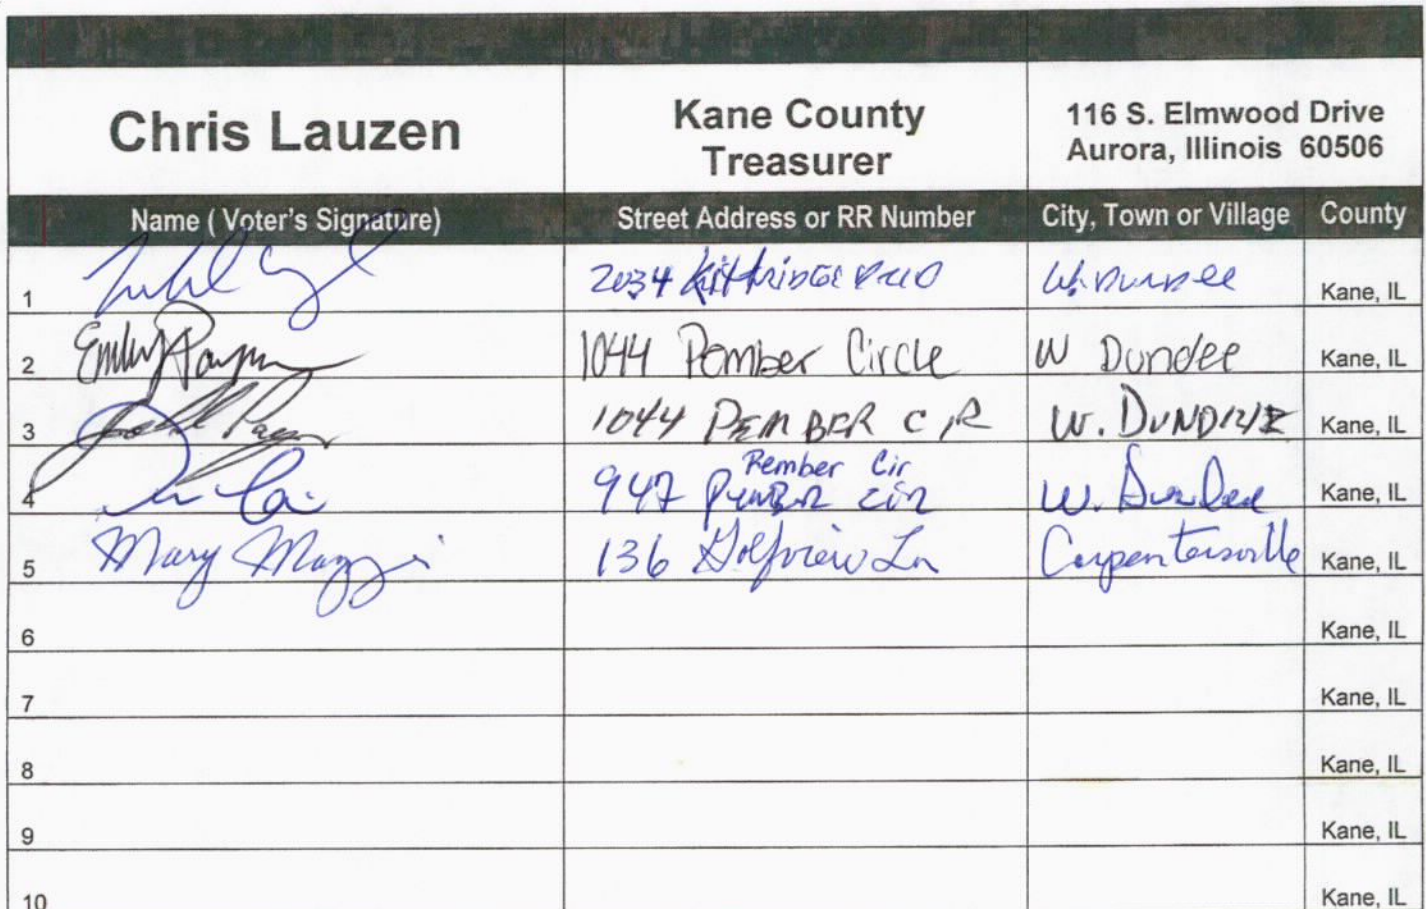 Chris Lauzen
Kane County
Treasurer
116 S. Elmwood Drive
Aurora, Illinois 60506
Name ( Voter's Signature) Street Address or RR Number City, Town or Village County
1 2034 W. Dundee Kane, IL
2 Emily 1044 Pember Circle W Dundee Kane, IL
3 1044 PEMBER CIR W. DUNDEE Kane, IL
Pember Cir
4 947 Pember Cir W. Dundee Kane, IL
5 Mary 136 Golfview Ln Carpentersville Kane, IL
6 Kane, IL
7 Kane, IL
8 Kane, IL
9 Kane, IL
10 Kane, IL